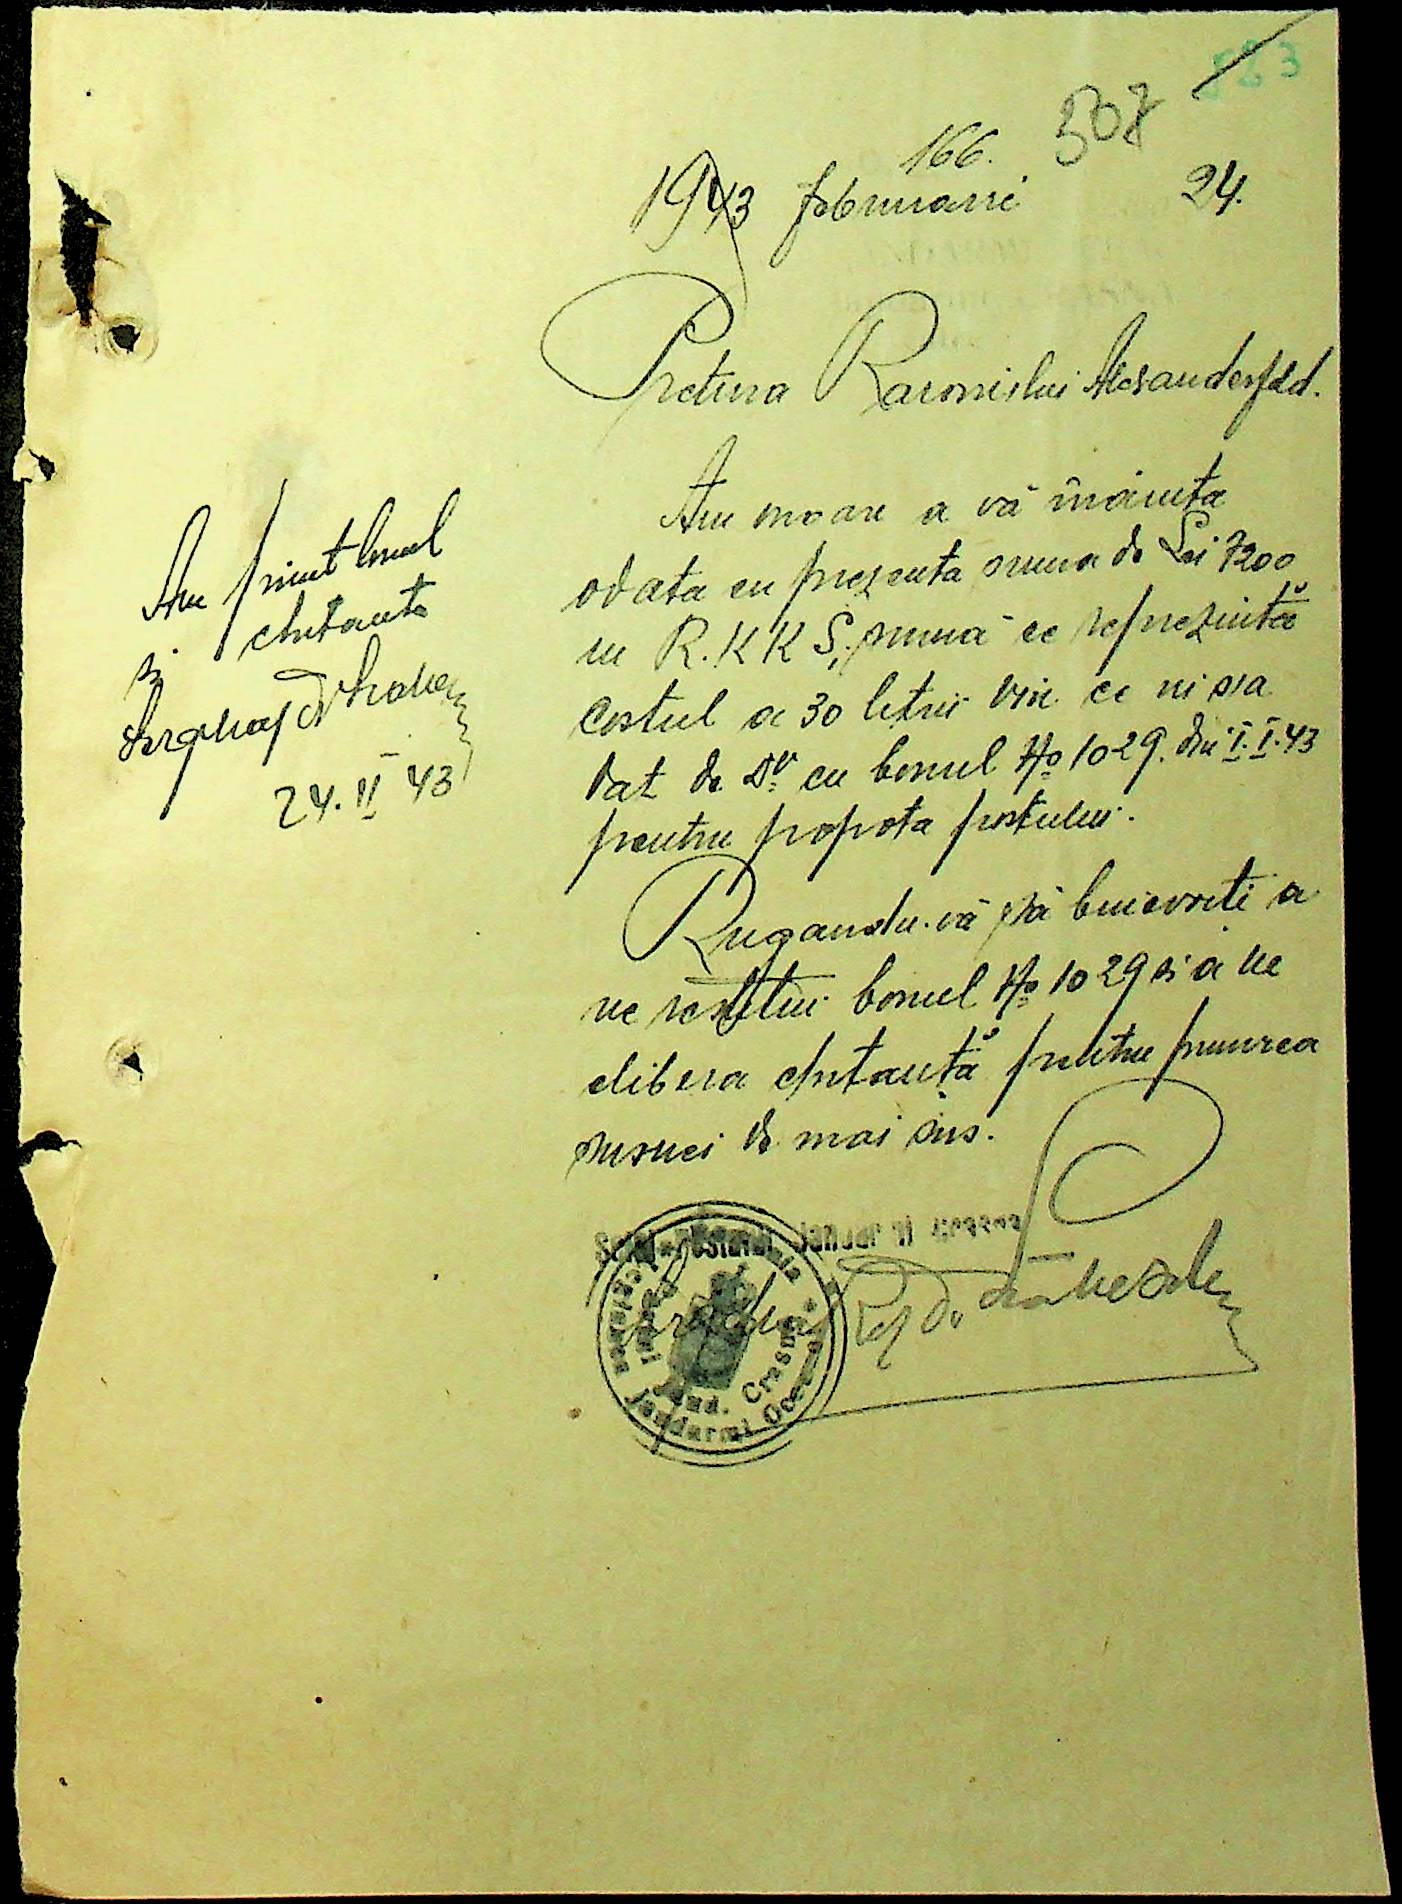 523
507
166.
1943 februarie 24.
Pretura Raionului Alexanderfeld.
Am onoare a vă înainta
odata cu prezenta suma de Lei 7200
in R.K.K.S, sumă ce reprezintă
costul a 30 litrii vin ce ni sa
dat de Dv. cu bonul No 1029. din I.I.43
pentru popota postului.
Rugandu-vă să binevoiti a
ne restitui bonul No 1029 si a ne
elibera chitanță pentru primirea
sumei de mai sus.
Am primit bonul
si chitanta
24.II 43
Seful Postului Jandarmi
Jud.
Jandarmi Ocea